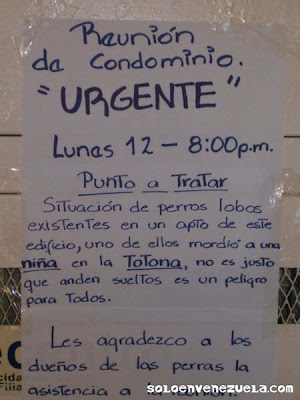 Reunión
de Condominio.
"URGENTE"
Lunas 12 - 8:00p.m.
Punto a Tratar
Situación de perros lobos
existentes en un apto de este
edificio, uno de ellos mordió a una
niña en la TOTONA, no es justo
que anden sueltos es un peligro
para Todos.
Les agradezco a los
dueños de las perras la
asistencia a la reunión.
soloenvenezuela.com